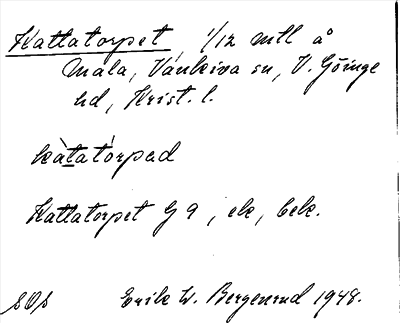 Kattatorpet, 1/12 mtl å
Mala, Vankiva sn, V. Göinge
hd, Krist. l.
kàtatórpad
Kattatorpet G 9, ek, bek.
SOS Erik W. Bergenrud 1948.